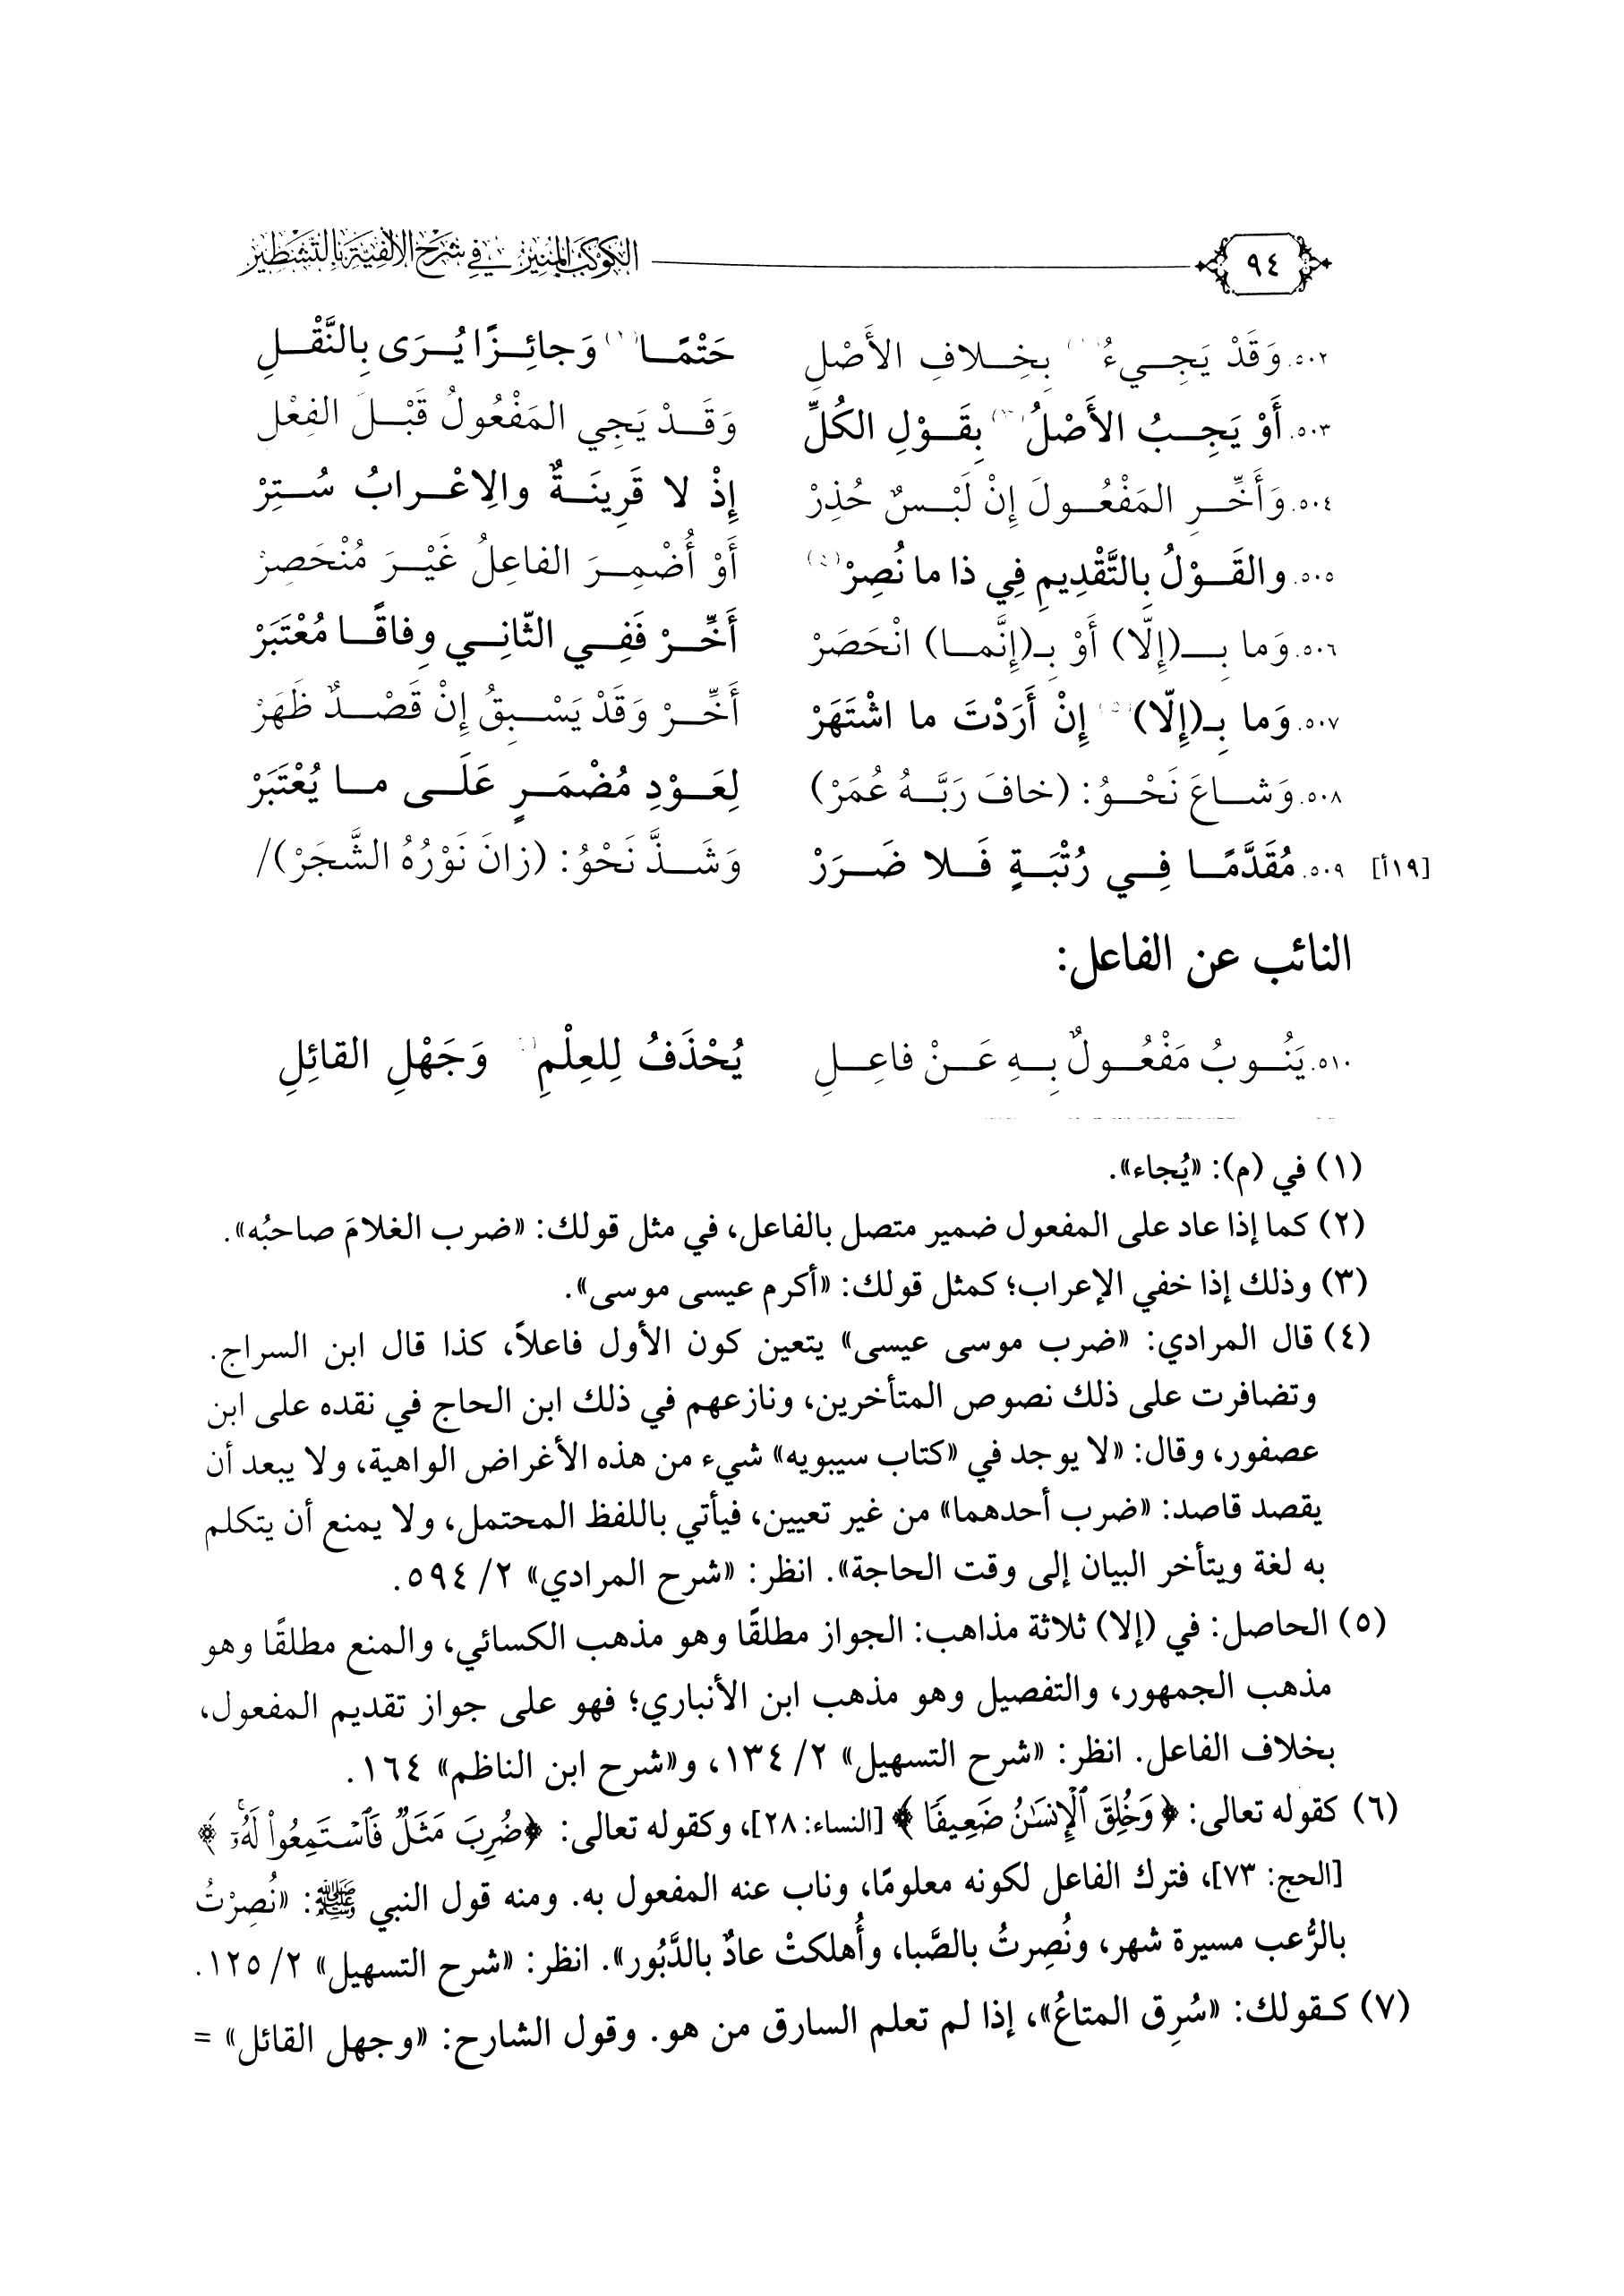 ٩٤ الكوكب المنير في شرح الألفية بالتشطير
٥٠٢. وَقَدْ يَجِيءُ(١) بِخِلافِ الأَصْلِ حَتْمًا(٢) وَجائِزًا يُرَى بِالنَّقْلِ
٥٠٣. أَوْ يَجِبُ الأَصْلُ(٣) بِقَوْلِ الكُلِّ وَقَدْ يَجِي المَفْعُولُ قَبْلَ الفِعْلِ
٥٠٤. وَأَخِّرِ المَفْعُولَ إِنْ لَبْسٌ حُذِرْ إِذْ لا قَرِينَةٌ والِاعْرابُ سُتِرْ
٥٠٥. والقَوْلُ بِالتَّقْدِيمِ فِي ذا ما نُصِرْ(٤) أَوْ أُضْمِرَ الفاعِلُ غَيْرَ مُنْحَصِرْ
٥٠٦. وَما بِـ(إِلَّا) أَوْ بِـ(إِنَّما) انْحَصَرْ أَخِّرْ فَفِي الثّانِي وِفاقًا مُعْتَبَرْ
٥٠٧. وَما بِـ(إِلّا)(٥) إِنْ أَرَدْتَ ما اشْتَهَرْ أَخِّرْ وَقَدْ يَسْبِقُ إِنْ قَصْدٌ ظَهَرْ
٥٠٨. وَشاعَ نَحْوُ: (خافَ رَبَّهُ عُمَرْ) لِعَوْدِ مُضْمَرٍ عَلَى ما يُعْتَبَرْ
[١٩أ] ٥٠٩. مُقَدَّمًا فِي رُتْبَةٍ فَلا ضَرَرْ وَشَذَّ نَحْوُ: (زانَ نَوْرُهُ الشَّجَرْ)/
النائب عن الفاعل:
٥١٠. يَنُوبُ مَفْعُولٌ بِهِ عَنْ فاعِلِ يُحْذَفُ لِلعِلْمِ(٦) وَجَهْلِ القائِلِ
(١) في (م): «يُجاء».
(٢) كما إذا عاد على المفعول ضمير متصل بالفاعل، في مثل قولك: «ضرب الغلامَ صاحبُه».
(٣) وذلك إذا خفي الإعراب؛ كمثل قولك: «أكرم عيسى موسى».
(٤) قال المرادي: «ضرب موسى عيسى» يتعين كون الأول فاعلاً، كذا قال ابن السراج.
وتضافرت على ذلك نصوص المتأخرين، ونازعهم في ذلك ابن الحاج في نقده على ابن
عصفور، وقال: «لا يوجد في «كتاب سيبويه» شيء من هذه الأغراض الواهية، ولا يبعد أن
يقصد قاصد: «ضرب أحدهما» من غير تعيين، فيأتي باللفظ المحتمل، ولا يمنع أن يتكلم
به لغة ويتأخر البيان إلى وقت الحاجة». انظر: «شرح المرادي» ٢/ ٥٩٤.
(٥) الحاصل: في (إلا) ثلاثة مذاهب: الجواز مطلقًا وهو مذهب الكسائي، والمنع مطلقًا وهو
مذهب الجمهور، والتفصيل وهو مذهب ابن الأنباري؛ فهو على جواز تقديم المفعول،
بخلاف الفاعل. انظر: «شرح التسهيل» ٢/ ١٣٤، و«شرح ابن الناظم» ١٦٤.
(٦) كقوله تعالى: ﴿وَخُلِقَ ٱلْإِنسَٰنُ ضَعِيفًا﴾ [النساء: ٢٨]، وكقوله تعالى: ﴿ضُرِبَ مَثَلٌ فَٱسْتَمِعُوا۟ لَهُۥٓ﴾
[الحج: ٧٣]، فترك الفاعل لكونه معلومًا، وناب عنه المفعول به. ومنه قول النبي ﷺ: «نُصِرْتُ
بالرُّعب مسيرة شهر، ونُصِرتُ بالصَّبا، وأُهلكتْ عادٌ بالدَّبُور». انظر: «شرح التسهيل» ٢/ ١٢٥.
(٧) كقولك: «سُرِق المتاعُ»، إذا لم تعلم السارق من هو. وقول الشارح: «وجهل القائل» =